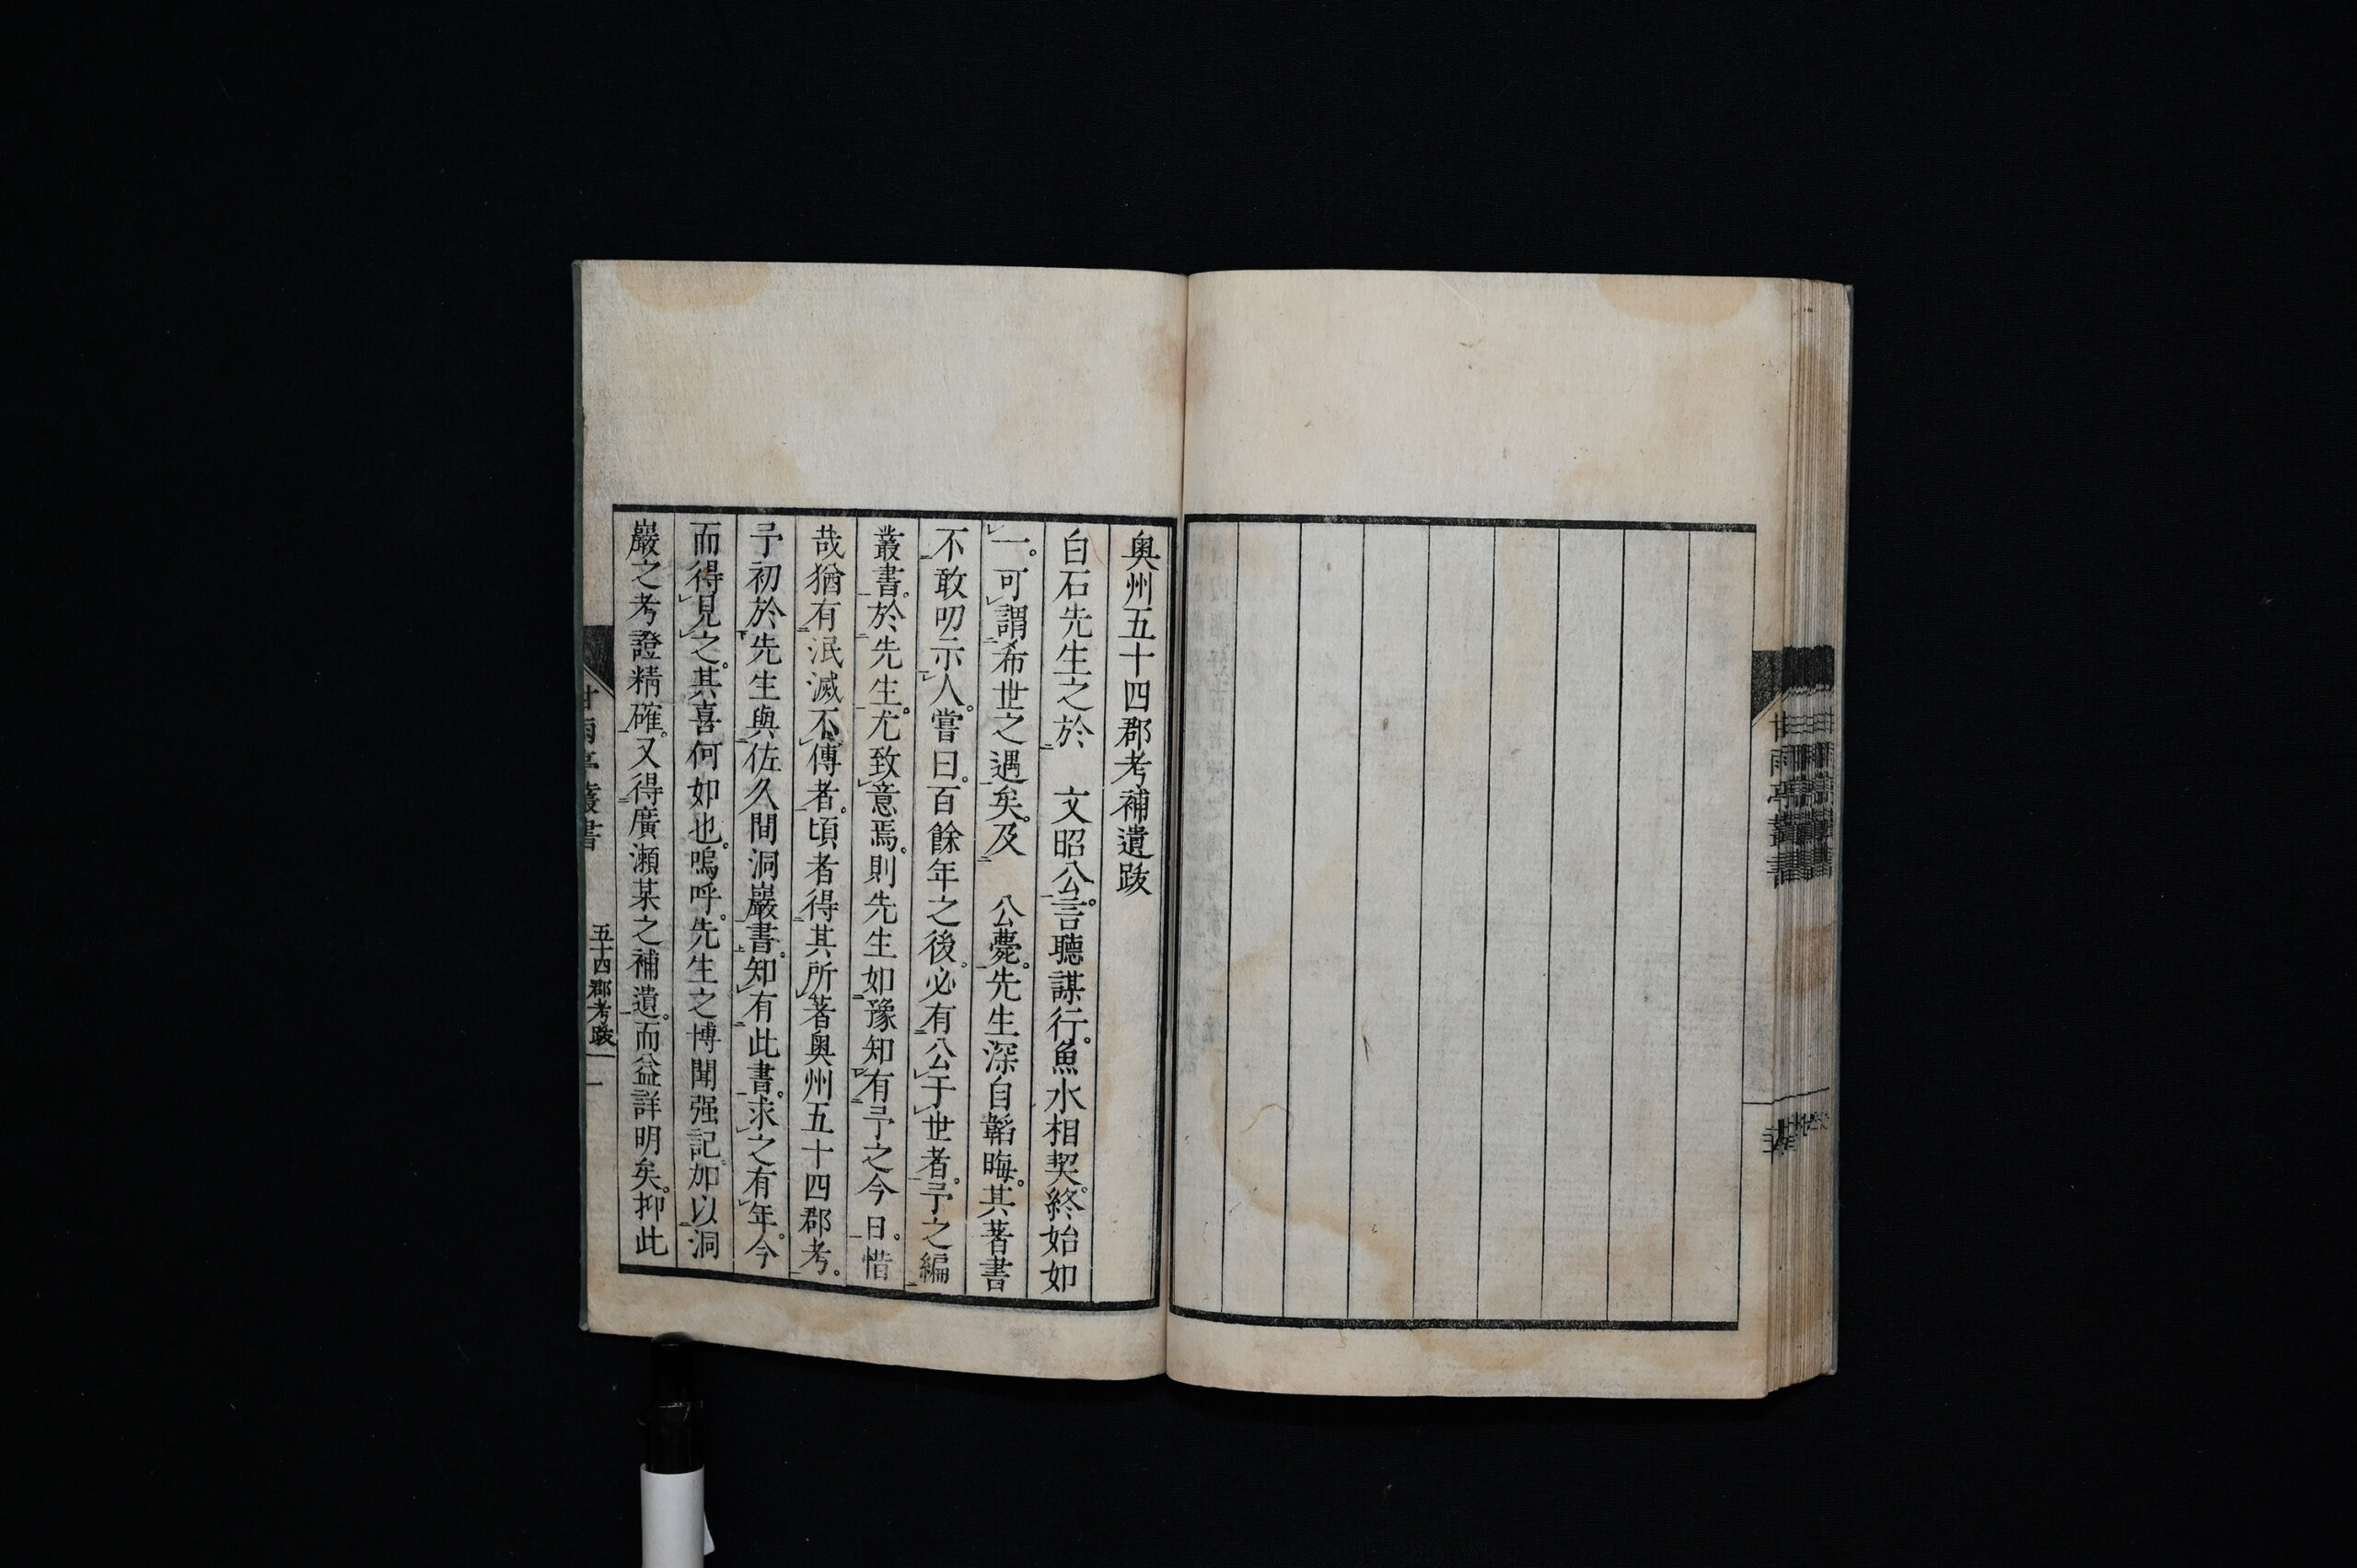 奥州五十四郡考補遺跋
白石先生之於　文昭公。言聽謀行。魚水相契。終始如
一。可謂希世之遇矣。及　公薨。先生深自韜晦。其著書
不敢叨示人。嘗曰。百餘年之後。必有公于世者。予之編
叢書。於先生。尤致意焉。則先生如豫知有予之今日。惜
哉猶有泯滅不傳者。頃者得其所著奥州五十四郡考。
予初於先生與佐久間洞巖書。知有此書。求之有年。今
而得見之。其喜何如也。嗚呼。先生之博聞强記。加以洞
巖之考證精確。又得廣瀬某之補遺。而益詳明矣。抑此
甘雨亭叢書
五十四郡考跋
一
甘雨亭叢書